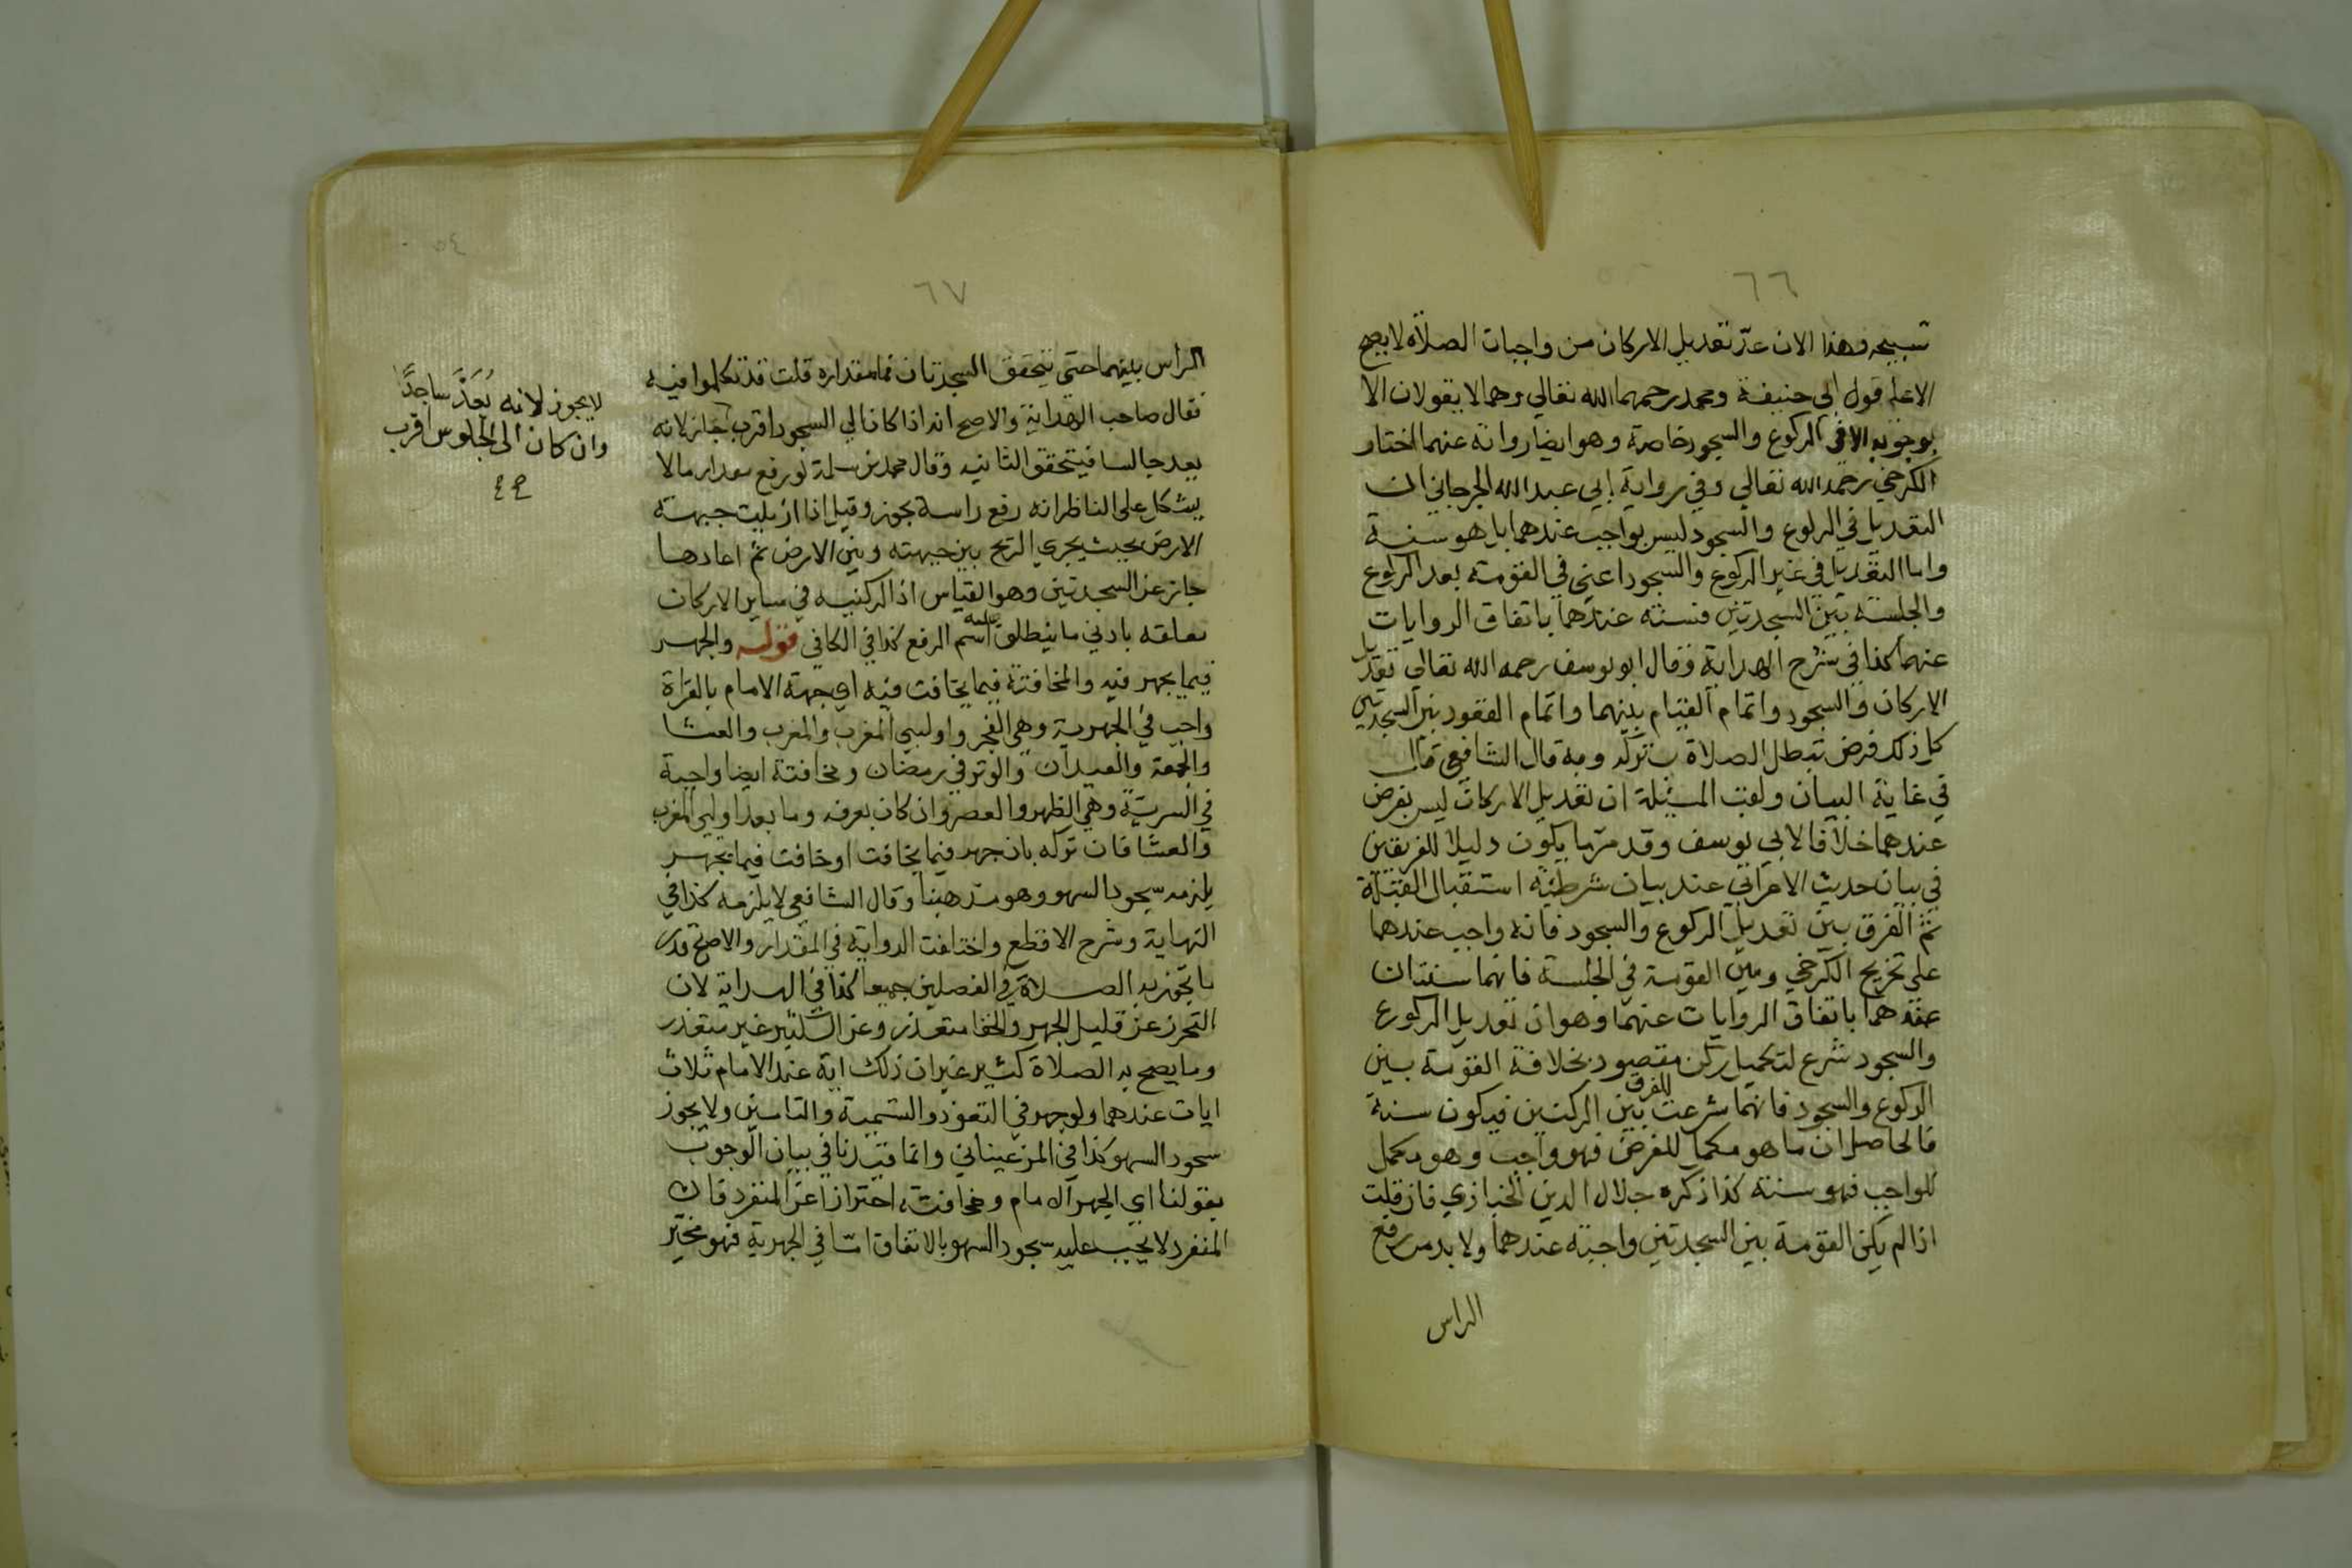 ٦٦
تسبيحه وهذا الان عدّ تعديل الاركان من واجبات الصلاة لا يصح
الا على قول ابى حنيفة ومحمد رحمهما الله تعالي وهما لا يقولان الا
بوجوبه الا في الركوع والسجود خاصة وهو ايضا رواية عنهما اختار
الكرخي رحمه الله تعالي وفي رواية ابي عبد الله الجرجاني ان
التعديل في الركوع والسجود ليس بواجب عندهما بل هو سنة
واما التعديل في غير الركوع والسجود اعني في القومة بعد الركوع
والجلسة بين السجدتين فسنة عندهما باتفاق الروايات
عنهما كذا في شرح الهداية وقال ابو يوسف رحمه الله تعالي تعديل
الاركان والسجود واتمام القيام بينهما واتمام القعود بين السجدتين
كل ذلك فرض تبطل الصلاة بتركه وبه قال الشافعي قال
في غاية البيان ولقب المسئلة ان تعديل الاركان ليس بفرض
عندهما خلافا لابي يوسف وقد مر ما يكون دليلا للفريقين
في بيان حديث الاعرابي عند بيان شرطية استقبال القبلة
ثم الفرق بين تعديل الركوع والسجود فانه واجب عندهما
على تخريج الكرخي وبين القومة في الجلسة فانهما سنتان
عندهما باتفاق الروايات عنهما وهو ان تعديل الركوع
والسجود شرع لتكميل ركن مقصود بخلافة القومة بين
الركوع والسجود فانهما شرعت للفرق بين الركنين فيكون سنة
فالحاصل ان ما هو مكمل للفرض فهو واجب وهو مكمل
للواجب فهو سنة كذا ذكره جلال الدين الخبازي فان قلت
اذا لم يكن القومة بين السجدتين واجبة عندهما ولا بد من رفع
الراس
٥٤
٦٧
الراس بينهما حتى يتحقق السجدتان فما مقداره قلت قد تكلموا فيه
فقال صاحب الهداية والاصح انه اذا كان الي السجود اقرب جاز لانه
يعد جالسا فيتحقق الثانيه وقال محمد بن سلمة لو رفع مقدار ما لا
يشكل على الناظر انه رفع راسه يجوز وقيل اذا ازيلت جبهته
الارض بحيث يجري الريح بين جبهته وبين الارض ثم اعادها
جاز عن السجدتين وهو القياس اذ الركنيه في ساير الاركان
متعلقه بادني ما ينطلق عليه اسم الرفع كذا في الكافي قوله والجهر
فيما يجهر فيه والمخافتة فيما يخافت فيه اي جهة الامام بالقراة
واجب في الجهرية وهي الفجر واوليي المغرب والمغرب والعشا
والجمعة والعيدان والوتر في رمضان ومخافتة ايضا واجبة
في السرية وهي الظهر والعصر وان كان بعرفه وما بعد اوليي المغرب
والعشا فان تركه بان جهر فيما يخافت او خافت فيما يجهر
يلزمه سجود السهو وهو مذهبنا وقال الشافعي لا يلزمه كذا في
النهاية وشرح الاقطع واختلفت الرواية في المقدار والاصح قدر
ما تجوز به الصلاة في الفصلين جميعا كذا في الهداية لان
التحرز عن قليل الجهر والخفا متعذر وعن الكثير غير متعذر
وما يصح به الصلاة كثير غير ان ذلك اية عند الامام ثلاث
ايات عندهما ولو جهر في التعوذ والتسمية والتامين ولا يجوز
سجود السهو كذا في المرغيناني وانما قيدنا في بيان الوجوب
بقولنا اي الجهر الامام ومخافته احترازا عن المنفرد فان
المنفرد لا يجب عليه سجود السهو بالاتفاق امّا في الجهرية فهو مخيّر
لا يجوز لانه يُعَدّ ساجدًا
وان كان الى الجلوس اقرب